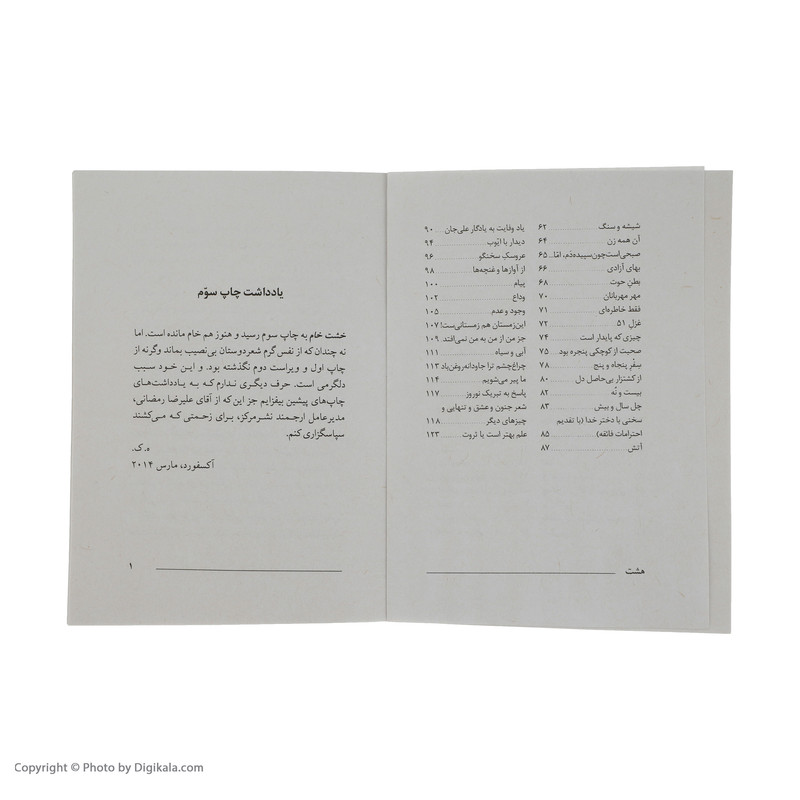 شیشه و سنگ ۶۲
آن همه زن ۶۴
صبحی‌است‌چون‌سپیده‌دَم، امّا.. ۶۵
بهای آزادی ۶۶
بطنِ حوت ۶۸
مهر مهربانان ۷۰
فقط خاطره‌ای ۷۱
غزل ۵۱ ۷۲
چیزی که پایدار است ۷۴
صحبت از کوچکی پنجره بود ۷۵
سِفْرِ پنجاه و پنج ۷۸
از کشتزار بی‌حاصل دل ۸۰
بیست و نُه ۸۲
چل سال و بیش ۸۳
سخنی با دختر خدا (با تقدیم
احترامات فائقه) ۸۵
آتش ۸۷
یاد وفایت به یادگار علی‌جان ۹۰
دیدار با ایّوب ۹۴
عروسکِ سخنگو ۹۶
از آوازها و غنچه‌ها ۹۸
پیام ۱۰۰
وداع ۱۰۲
وجود و عدم ۱۰۵
این‌زمستان هم زمستانی‌ست! ۱۰۷
جز من از من به من نمی‌افتد ۱۰۹
آبی و سیاه ۱۱۱
چراغ‌چشم ترا جاودانه‌روغن‌باد ۱۱۳
ما پیر می‌شویم ۱۱۴
پاسخ به تبریک نوروز ۱۱۷
شعر جنون و عشق و تنهایی و
چیزهای دیگر ۱۱۸
علم بهتر است یا ثروت ۱۲۳
هشت
یادداشت چاپ سوّم
خشت خام به چاپ سوم رسید و هنوز هم خام مانده است. اما
نه چندان که از نفس گرم شعردوستان بی‌نصیب بماند وگرنه از
چاپ اول و ویراست دوم نگذشته بود. و این خود سبب
دلگرمی است. حرف دیگری ندارم که به یادداشت‌های
چاپ‌های پیشین بیفزایم جز این که از آقای علیرضا رمضانی،
مدیرعامل ارجمند نشرمرکز، برای زحمتی که می‌کشند
سپاسگزاری کنم.
ه. ک.
آکسفورد، مارس ۲۰۱۴
۱
Copyright © Photo by Digikala.com